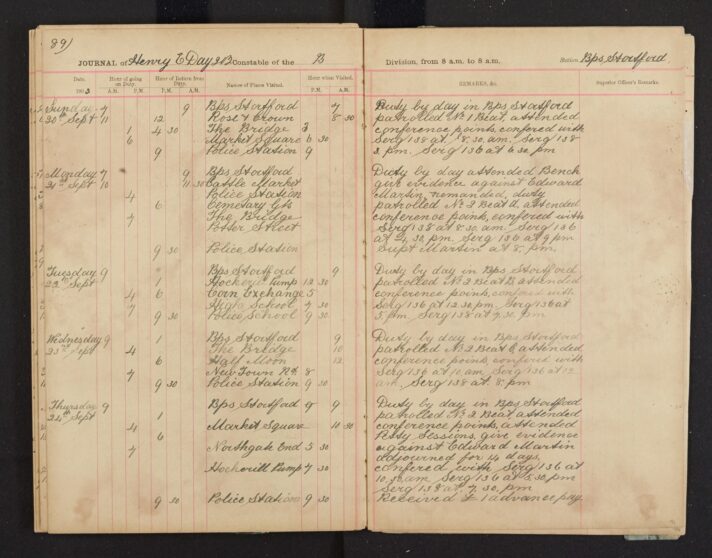 89)
JOURNAL of Henry E Day 213 Constable of the B Division, from 8 a.m. to 8 a.m. Station Bps Stortford
Date. Hour of going on Duty. Hour of Return from Duty. Names of Places Visited. Hour when Visited. REMARKS, &c. Superior Officer's Remarks.
A.M. P.M. A.M. P.M. P.M. A.M.
Sunday 7 9 Bps Stortford 7
20th Sept 11 12 Rose & Crown 8 30
1 4 30 The Bridge 3
6 Market Square 6 30
9 Police Station 9
Monday 7 9 Bps Stortford
21st Sept 10 11 30 Cattle Market
4 Police Station
6 Cemetary Gts
7 The Bridge
Potter Street
9 30 Police Station
Tuesday 9 Bps Stortford 9
22nd Sept 1 Hockerill Pump 12 30
4 6 Corn Exchange 5
7 High School 9 30
9 30 Police School 9 30
Wednesday 9 1 Bps Stortford 9
23rd Sept 4 The Bridge 10
6 Half Moon 12
7 New Town Rd 8
9 30 Police Station 9 30
Thursday 9 Bps Stortford 9 9
24th Sept 1
4 Market Square 10 30
6
7 Northgate End 5 30
Hockerill Pump 7 30
9 30 Police Station 9 30
Duty by day in Bps Stortford
patrolled No 1 Beat, attended
conference points, confered with
Serg 138 at 8.30 am. Serg 138
3 pm. Serg 136 at 6.30 pm
Duty by day attended Bench
give evidence against Edward
Martin, remanded, duty
patrolled No 2 Beat &, attended
conference points, confered with
Serg 138 at 8.30 am. Serg 136
at 4.30 pm. Serg 136 at 9 pm
Supt Martin at 8. pm.
Duty by day in Bps Stortford
patrolled No 2 Beat & attended
conference points, confered with
Serg 136 at 12.30 pm. Serg 136 at
5 pm. Serg 138 at 7.30 pm
Duty by day in Bps Stortford
patrolled No 2 Beat &, attended
conference points, confered with
Serg 136 at 10 am Serg 136 at 12
am. Serg 138 at 8. pm
Duty by day in Bps Stortford
patrolled No 2 Beat attended
conference points, attended
Petty Sessions, give evidence
against Edward Martin
adjourned for 14 days,
confered with Serg 136 at
10.30 am Serg 136 at 5.30 pm
Serg 138 at 7.30 pm
Received £1 advance pay.